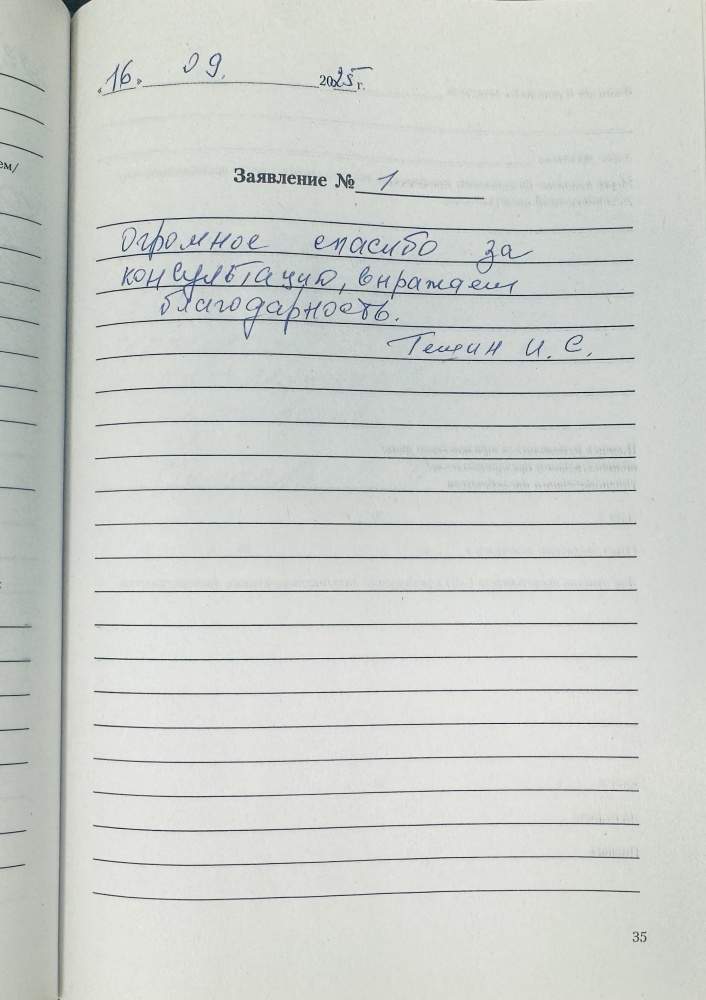 «16» 09. 2025 г.
Заявление № 1
огромное спасибо за
консультацию, выражаем
благодарность.
Тещин И. С.
ем/
35